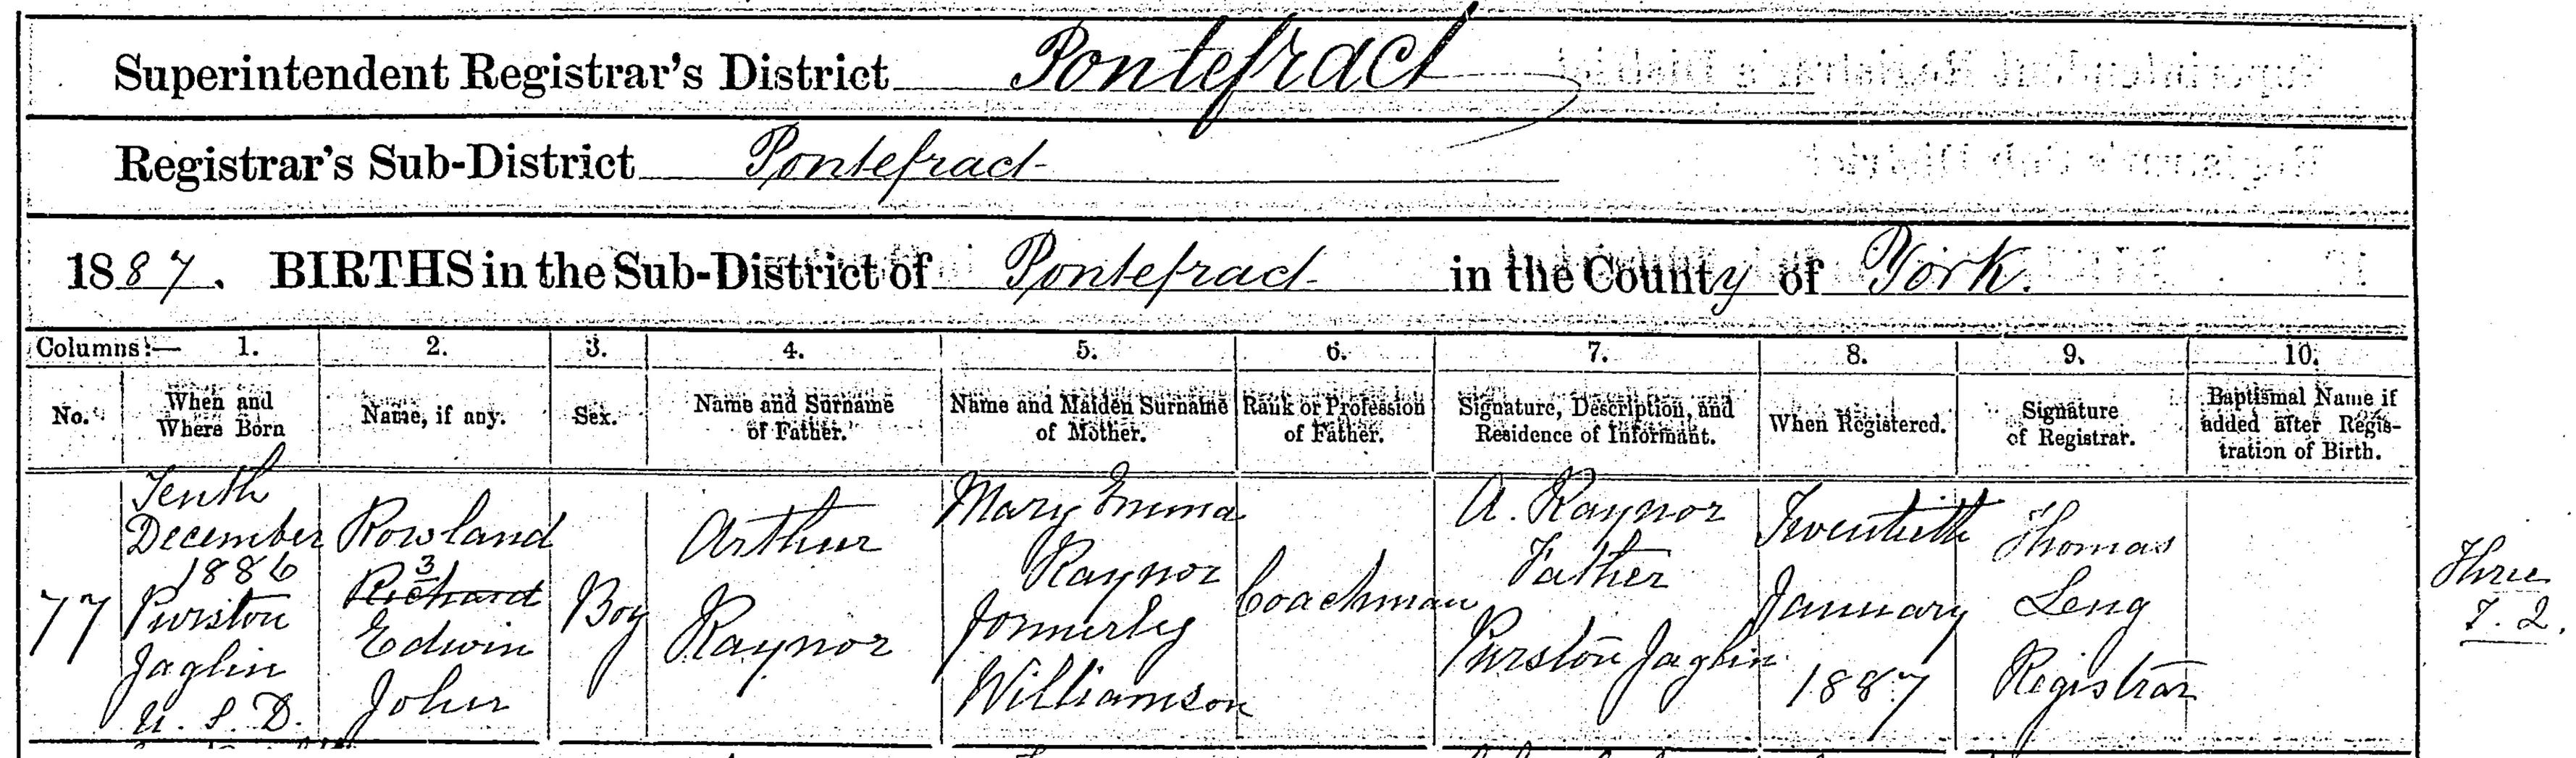 Superintendent Registrar's District Pontefract
Registrar's Sub-District Pontefract
1887. BIRTHS in the Sub-District of Pontefract in the County of York.
Columns:— 1. 2. 3. 4. 5. 6. 7. 8. 9. 10.
No. When and Where Born Name, if any. Sex. Name and Surname of Father. Name and Maiden Surname of Mother. Rank or Profession of Father. Signature, Description, and Residence of Informant. When Registered. Signature of Registrar. Baptismal Name if added after Registration of Birth.
77
Tenth
December
1886
Purston
Jaglin
U. S. D.
Rowland
3
Richard
Edwin
John
Boy
Arthur
Raynor
Mary Emma
Raynor
formerly
Williamson
Coachman
A. Raynor
Father
Purston Jaglin
Twentieth
January
1887
Thomas
Leng
Registrar
Three
T. L.